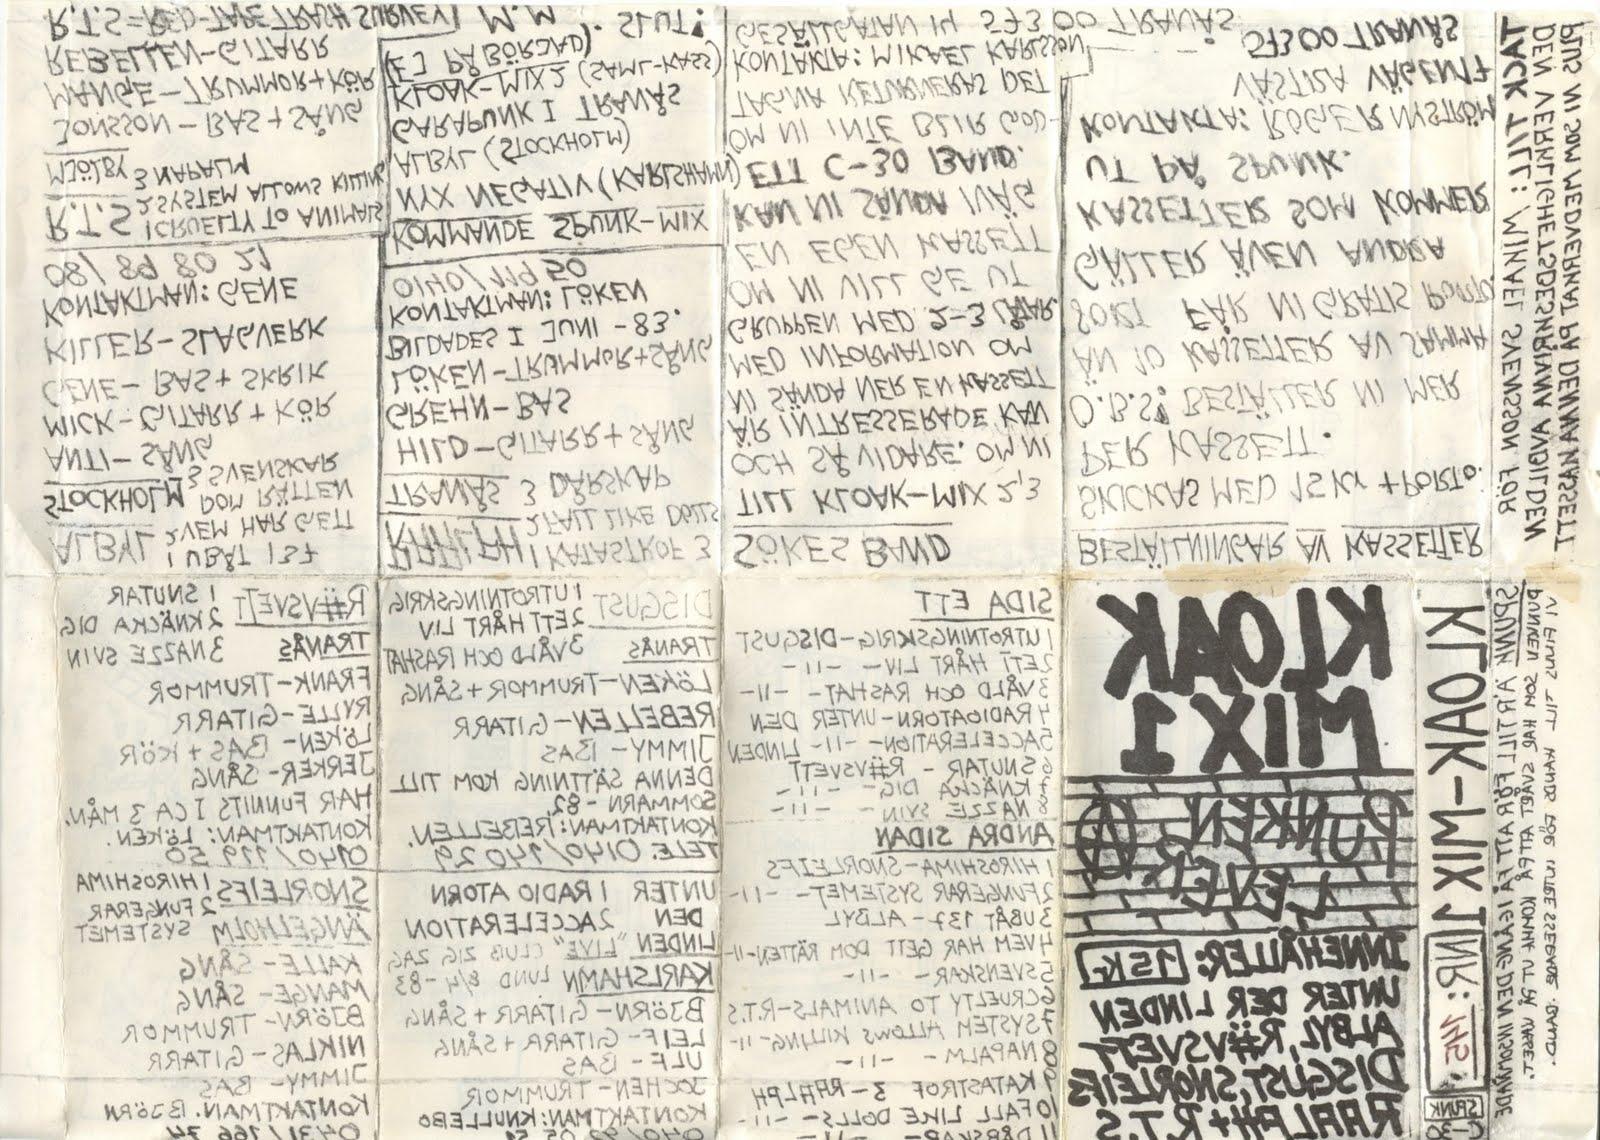 KLOAK
MIX 1
PUNKEN
LEVER
INNEHÅLLER: 15 Kr
UNTER DER LINDEN
ALBYL, R#VSVETT
DISGUST, SNORLEIFS
RAALPH + R.T.S
KLOAK-MIX 1 NR:
SPUNK
SIDA ETT
1 UTROTNINGSKRIG-DISGUST
2 ETT HÅRT LIV- -11-
3 VÅLD OCH RASHAT- -11-
4 RADIOATORN-UNTER DEN
5 ACCELERATION- -11- LINDEN
6 SNUTAR - R#VSVETT
7 KNÄCKA DIG- -11-
8 NAZZE SVIN -11-
ANDRA SIDAN
1 HIROSHIMA-SNORLEIFS
2 FUNGERAR SYSTEMET- -11-
3 UBÅT 137 - ALBYL
4 VEM HAR GETT DOM RÄTTEN-11-
5 SVENSKAR - -11-
6 CRUELTY TO ANIMALS-R.T.S
7 SYSTEM ALLOWS KILLING-11-
8 NAPALM- -11-
9 KATASTROF 3-RAALPH
10 FALL LIKE DOLLS- -11-
11 DÅRSKAP- -11-
DISGUST 1 UTROTNINGSKRIG
2 ETT HÅRT LIV
TRANÅS 3 VÅLD OCH RASHAT
LÖKEN-TRUMMOR+SÅNG
REBELLEN-GITARR
JIMMY-BAS
DENNA SÄTTNING KOM TILL
SOMMARN -82
KONTAKTMAN: REBELLEN.
TELE. 0140/140 29
UNTER 1 RADIO ATORN
DEN 2 ACCELERATION
LINDEN "LIVE" CLUB ZIG ZAG
KARLSHAMN LUND 8/4-83
BJÖRN-GITARR+SÅNG
LEIF-GITARR+SÅNG
ULF-BAS
JOCHEN-TRUMMOR
KONTAKTMAN: KNULLEBO
R#VSVETT 1 SNUTAR
2 KNÄCKA DIG
TRANÅS 3 NAZZE SVIN
FRANK-TRUMMOR
RYLLE-GITARR
LÖKEN-BAS+KÖR
JERKER-SÅNG
HAR FUNNITS I CA 3 MÅN.
KONTAKTMAN: LÖKEN.
0140/119 50
SNORLEIFS 1 HIROSHIMA
2 FUNGERAR
ÄNGELHOLM SYSTEMET
KALLE-SÅNG
MANGE-SÅNG
BJÖRN-TRUMMOR
NIKLAS-GITARR
JIMMY-BAS
KONTAKTMAN. BJÖRN
0431/166 74
ALBYL 1 UBÅT 137
2 VEM HAR GETT
DOM RÄTTEN
STOCKHOLM 3 SVENSKAR
ANTI-SÅNG
MICK-GITARR+KÖR
GENE-BAS+SKRIK
KILLER-SLAGVERK
KONTAKTMAN: GENE
08/89 80 21
R.T.S 1 CRUELTY TO ANIMALS
2 SYSTEM ALLOWS KILLING
MJÖLBY 3 NAPALM
JONSSON-BAS+SÅNG
MANGE-TRUMMOR+KÖR
REBELLEN-GITARR
R.T.S=RED-TAPE TRASH SURVEY!
RAALPH 1 KATASTROF 3
2 FALL LIKE DOLLS
TRANÅS 3 DÅRSKAP
HILD-GITARR+SÅNG
GREHN-BAS
LÖKEN-TRUMMOR+SÅNG
BILDADES I JUNI -83.
KONTAKTMAN: LÖKEN
0140/119 50
KOMMANDE SPUNK-MIX
NYX NEGATIV (KARLSHAMN)
ALBYL (STOCKHOLM)
GARAPUNK I TRANÅS
KLOAK-MIX 2 (SAML-KASS)
(EJ PÅBÖRJAD).
M.M. SLUT!
SÖKES BAND
TILL KLOAK-MIX 2,3
OCH SÅ VIDARE. OM NI
ÄR INTRESSERADE KAN
NI SÄNDA NER EN KASSETT
MED INFORMATION OM
GRUPPEN MED 2-3 LÅTAR.
OM NI VILL GE UT
EN EGEN KASSETT
KAN NI SÄNDA IVÄG
ETT C-30 BAND.
OM NI INTE BLIR GOD-
TAGNA RETURNERAS DET
KONTAKTA: MIKAEL KARLSSON
GESÄLLGATAN 14 573 00 TRANÅS
BESTÄLLNINGAR AV KASSETTER
SKICKAS MED 15 Kr + PORTO.
PER KASSETT.
O.B.S! BESTÄLLER NI MER
ÄN 10 KASSETTER AV SAMMA
SORT FÅR NI GRATIS PORTO
GÄLLER ÄVEN ANDRA
KASSETTER SOM KOMMER
UT PÅ SPUNK.
KONTAKTA: ROGER NYSTRÖM
VÄSTRA VÄGEN 17
573 00 TRANÅS
TACK TILL: MIKAEL SVENSSON FÖR